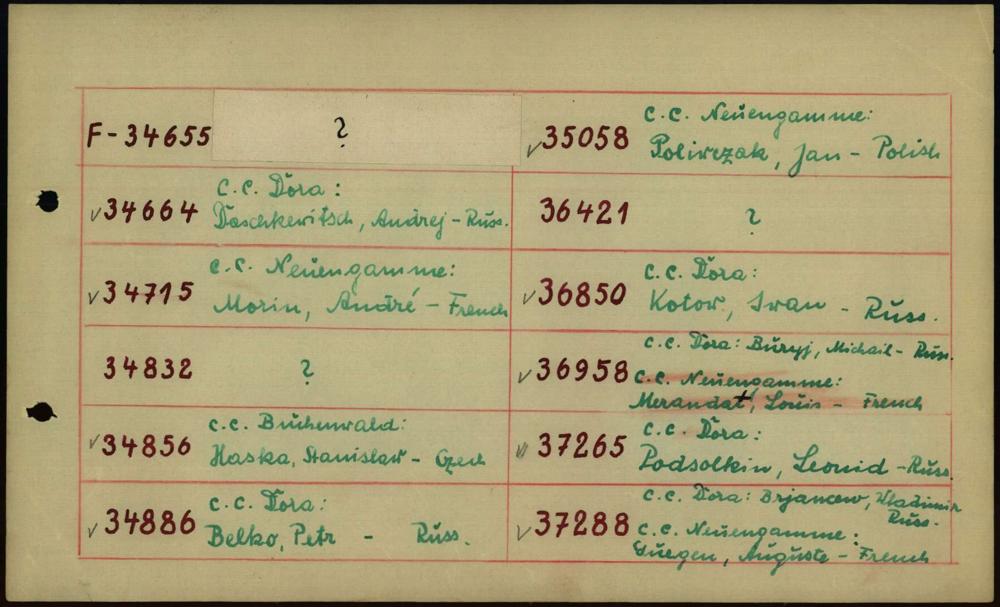 F-34655 ?
✓34664 C.C. Dora:
Daschkewitsch, Andrej - Russ.
✓34715 C.C. Neuengamme:
Morin, André - French
34832 ?
✓34856 C.C. Buchenwald:
Haska, Stanislaw - Czech
✓34886 C.C. Dora:
Belko, Petr - Russ.
✓35058 C.C. Neuengamme:
Jan - Polish
36421 ?
✓36850 C.C. Dora:
Kotow, Iwan - Russ.
✓36958 C.C. Dora: Buryj, Michail - Russ.
C.C. Neuengamme:
Merandat, Louis - French
37265 C.C. Dora:
Podsolkin, Leonid - Russ.
✓37288 C.C. Dora: Brjancew, Wladimir
Russ.
C.C. Neuengamme:
Guegen, Auguste - French